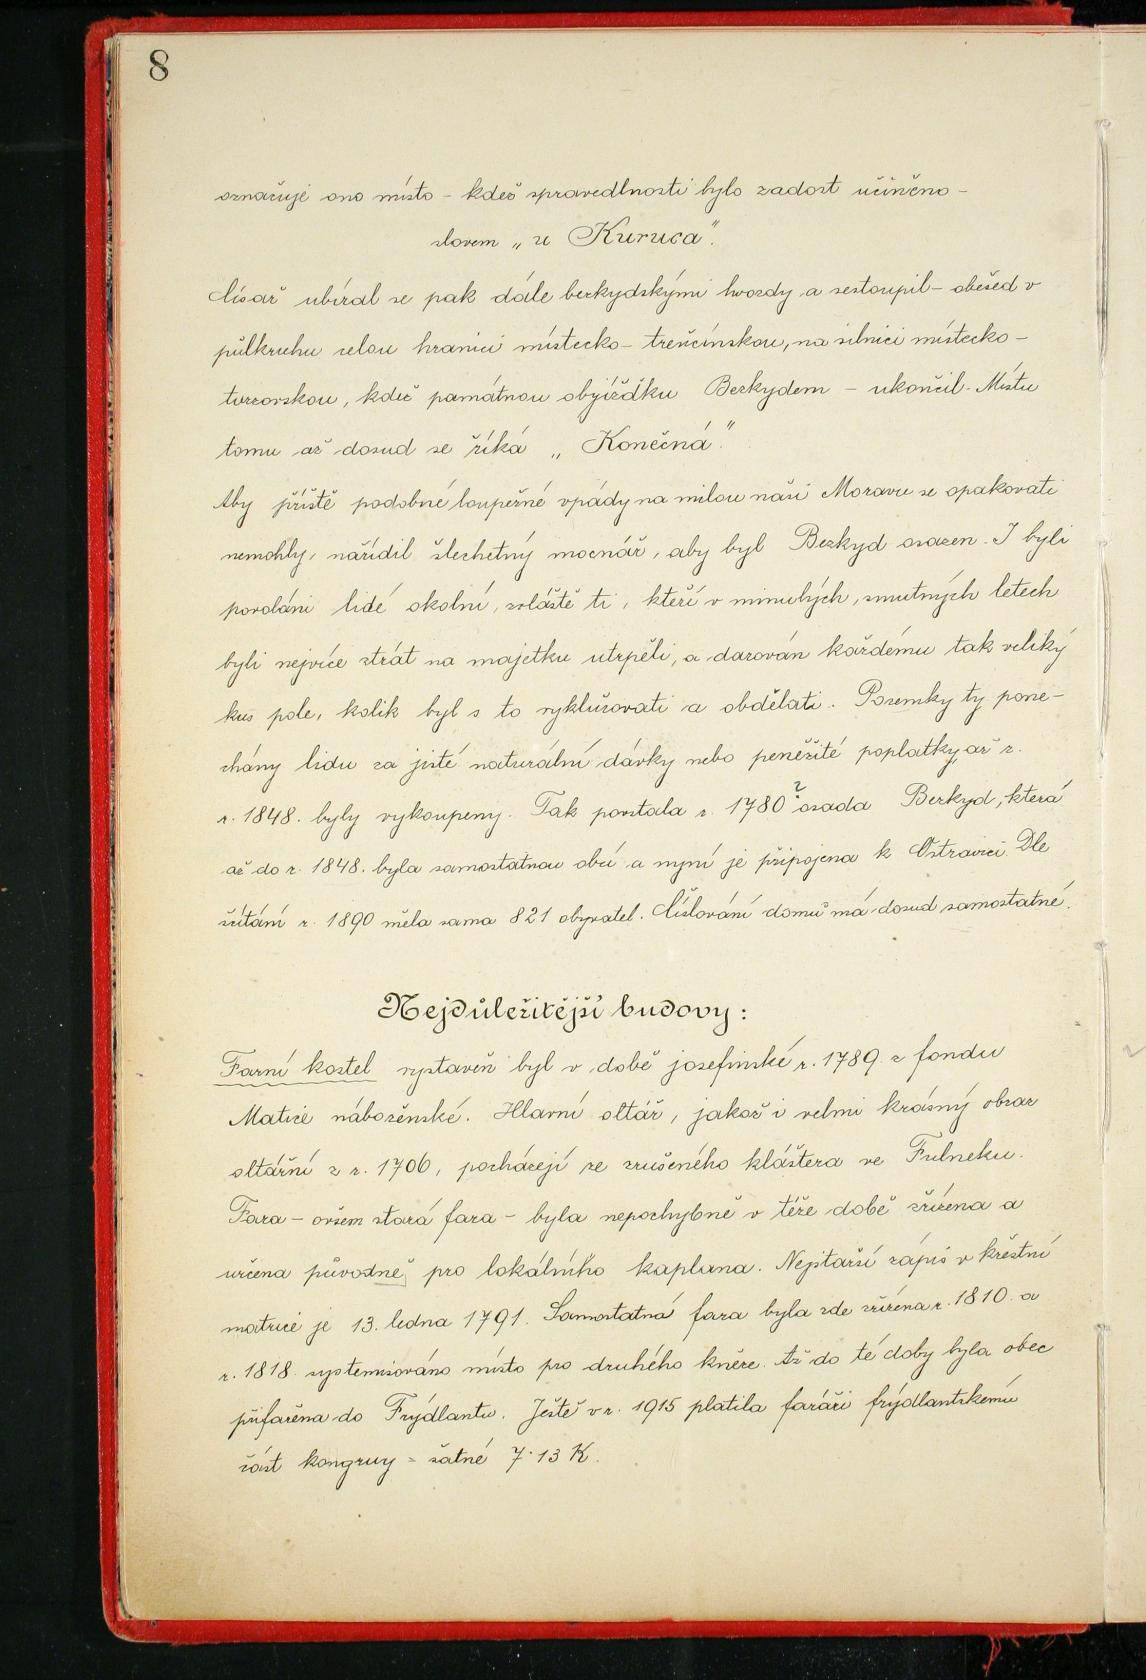 8
označuje ono místo - kdež spravedlnosti bylo zadost učiněno -
slovem „u Kuruca".
Císař ubíral se pak dále berkydskými hvozdy a sestoupil - obešed v
půlkruhu celou hranici místecko - trenčínskou, na silnici místecko -
turzovskou, kdež památnou objížďku Berkydem - ukončil. Místu
tomu až dosud se říká „Konečná".
Aby příště podobné loupežné vpády na milou naši Moravu se opakovati
nemohly, nařídil šlechetný mocnář, aby byl Berkyd osazen. I byli
povoláni lidé okolní, zvláště ti, kteří v minulých, smutných letech
byli nejvíce ztrát na majetku utrpěli, a darován každému tak veliký
kus pole, kolik byl s to vyklučovati a obdělati. Pozemky ty pone-
chány lidu za jisté naturální dávky nebo peněžité poplatky, až r.
r. 1848. byly vykoupeny. Tak povstala r. 1780 ? osada Berkyd, která
až do r. 1848. byla samostatnou obcí a nyní je připojena k Ostravici. Dle
sčítání r. 1890 měla sama 821 obyvatel. Číslování domů má dosud samostatné.
Nejdůležitější budovy:
Farní kostel vystavěn byl v době josefinské r. 1789 z fondu
Matice náboženské. Hlavní oltář, jakož i velmi krásný obraz
oltářní z r. 1706, pocházejí ze zrušeného kláštera ve Fulneku.
Fara - ovšem stará fara - byla nepochybně v téže době zřízena a
určena původně pro lokálního kaplana. Nejstarší zápis v křestní
matrice je 13. ledna 1791. Samostatná fara byla zde zřízena r. 1810. a
r. 1818. systemisováno místo pro druhého kněze. Až do té doby byla obec
přifařena do Frýdlantu. Ještě v r. 1915 platila faráři frýdlantskému
část kongruy = šatné 7·13 K.